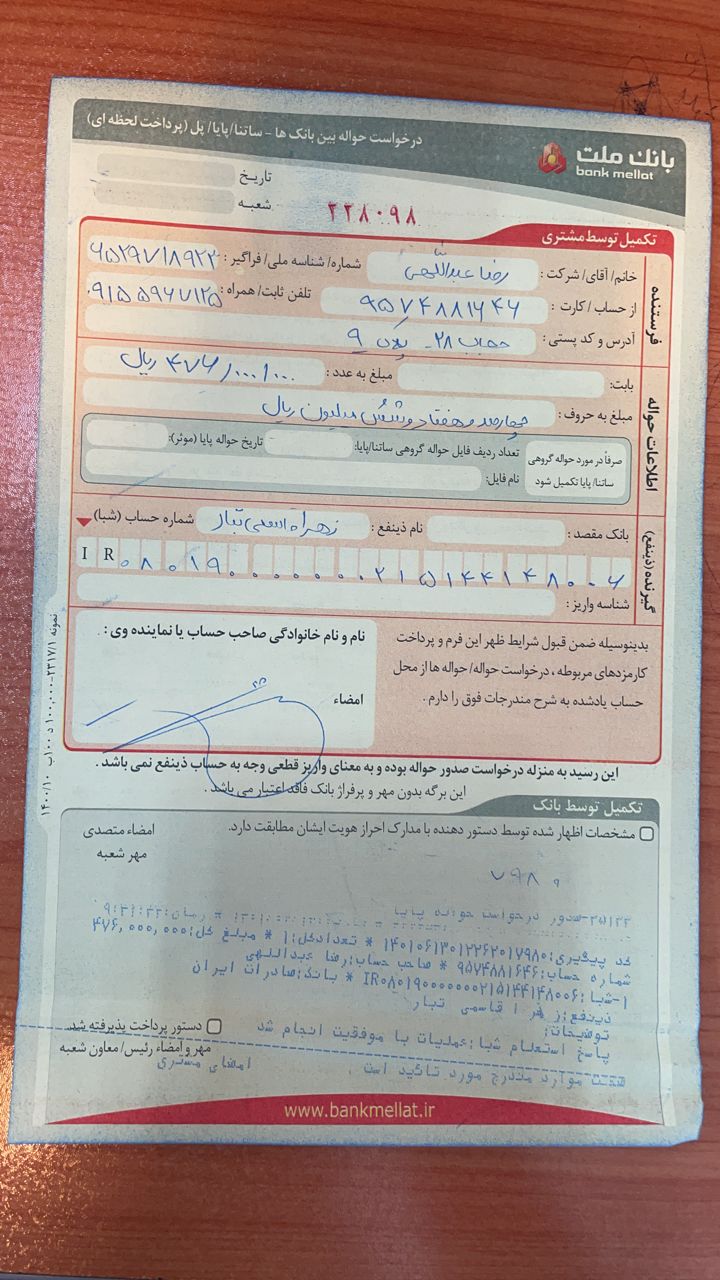 درخواست حواله بین بانک ها - ساتنا/پایا/ پل (پرداخت لحظه ای)
بانک ملت
bank mellat
تاریخ
شعبه
۲۲۸۰۹۸
تکمیل توسط مشتری
فرستنده
خانم/ آقای/ شرکت : رضا عبداللهی شماره/ شناسه ملی/ فراگیر :
از حساب / کارت : ۹۵۷۴۸۸۱۶۴۶ تلفن ثابت/ همراه : ۰۹۱۵۵۹۶۷۱۲۵
آدرس و کد پستی : حجاب ۲۸ - پلاک ۹
اطلاعات حواله
بابت: مبلغ به عدد : ۴۷۶/۰۰۰/۰۰۰ ریال
مبلغ به حروف : چهارصد و هفتاد و شش میلیون ریال
صرفاً در مورد حواله گروهی ساتنا/ پایا تکمیل شود
تعداد ردیف فایل حواله گروهی ساتنا/پایا: تاریخ حواله پایا (موثر):
نام فایل:
گیرنده (ذینفع)
بانک مقصد : نام ذینفع : زهرا قاسمی تبار شماره حساب (شبا)
IR۰۸۰۱۹۰۰۰۰۰۰۰۰۲۱۵۱۴۴۱۴۸۰۰۶
شناسه واریز :
بدینوسیله ضمن قبول شرایط ظهر این فرم و پرداخت
کارمزدهای مربوطه ، درخواست حواله/ حواله ها از محل
حساب یادشده به شرح مندرجات فوق را دارم .
نام و نام خانوادگی صاحب حساب یا نماینده وی :
امضاء
این رسید به منزله درخواست صدور حواله بوده و به معنای واریز قطعی وجه به حساب ذینفع نمی باشد .
این برگه بدون مهر و پرفراژ بانک فاقد اعتبار می باشد .
نمونه ۲۳۱۷/۱-۱۰۰،۰۰۰ د ۱۰۰ ب ۱۴۰۰/۱۰
تکمیل توسط بانک
مشخصات اظهار شده توسط دستور دهنده با مدارک احراز هویت ایشان مطابقت دارد.
امضاء متصدی
مهر شعبه
۷۹۸۰
صدور درخواست حواله پایا
کد پیگیری:۱۴۰۱۰۶۱۳۰۱۲۲۶۲۰۱۷۹۸۰ * تعدادکل:۱ * مبلغ کل:۴۷۶,۰۰۰,۰۰۰
شماره حساب:۹۵۷۴۸۸۱۶۴۶ * صاحب حساب:رضا عبداللهی
۱-شبا:IR۰۸۰۱۹۰۰۰۰۰۰۰۰۲۱۵۱۴۴۱۴۸۰۰۶ * بانک:صادرات ایران
ذینفع:زهرا قاسمی تبار
توضیحات:
پاسخ استعلام شبا:عملیات با موفقیت انجام شد
صحت موارد مندرج مورد تائید است . امضای مشتری
دستور پرداخت پذیرفته شد.
مهر و امضاء رئیس/ معاون شعبه
www.bankmellat.ir